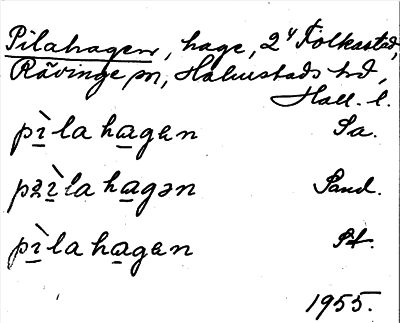 Pilahagen, hage, 2⁴ Folkastad,
Rävinge sn, Halmstads hd,
Hall. l.
pìlahagen Sa.
pzìlahagən Sand.
pìlahagen St.
1955.